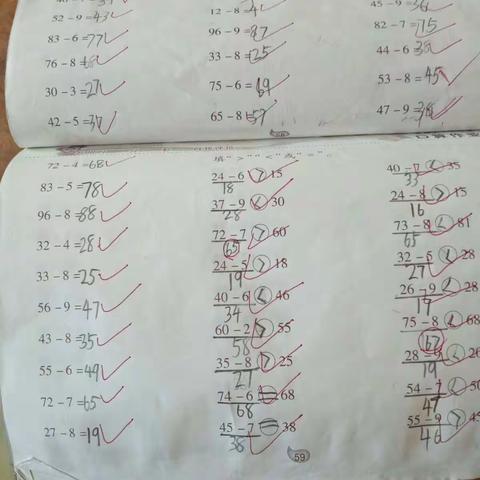 52-9=43 12-8=4 45-9=36
83-6=77 96-9=87 82-7=75
76-8=68 33-8=25 44-6=38
30-3=27 75-6=69 53-8=45
42-5=37 65-8=57 47-9=38
72-4=68 填">""<"或"="。
83-5=78 24-6>15 40-7<35
18 33
96-8=88 37-9<30 24-8>15
28 16
32-4=28 72-7>60 73-8<81
65 65
33-8=25 24-5>18 32-5<28
19 27
56-9=47 40-6<46 26-9<28
34 17
43-8=35 60-2>55 75-8<68
58 67
55-6=49 35-8>25 28-9<
27 19
72-7=65 74-6=68 54-7<
68 47
27-8=19 45-7=38 55-9>
38 46
59